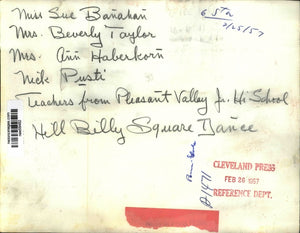 Miss Sue Banahan
Mrs. Beverly Taylor
Mrs. Ann Haberkorn
Nick Pusti
Teachers from Pleasant Valley Jr. Hi School
Hill Billy Square Dance
6 STA
2/25/57
CLEVELAND PRESS
FEB 26 1957
REFERENCE DEPT.